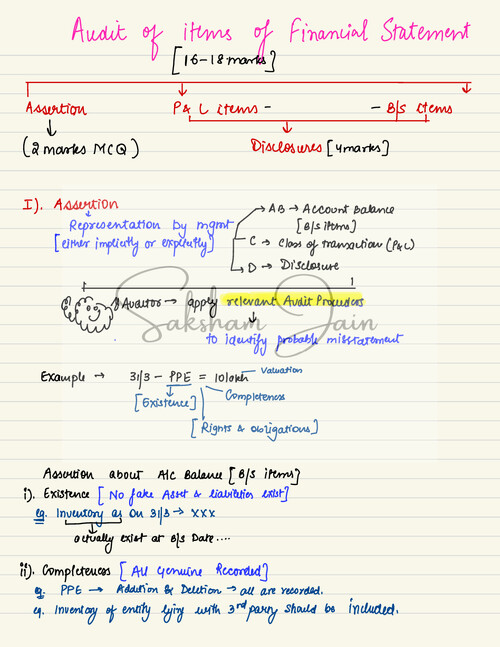 Audit of items of Financial Statement
[16-18 marks]
Assertion P & L items - - B/S items
(2 marks MCQ) Disclosures [4 marks]
I). Assertion
Representation by mgmt
[either implicitly or explicitly]
AB → Account Balance
[B/S items]
C → Class of transaction (P&L)
D → Disclosure
Auditor → apply relevant Audit Procedures
Saksham Jain
to identify probable misstatement
Example → 31/3 - PPE = 10 lakh Valuation
Completeness
[Existence]
[Rights & obligations]
Assertion about A/c Balance [B/S items]
i). Existence [No fake Asset & liabilities exist]
eg. Inventory as on 31/3 → XXX
actually exist at B/S Date....
ii). Completeness [All genuine Recorded]
eg. PPE → Addition & Deletion → all are recorded.
eg. Inventory of entity lying with 3rd party should be included.